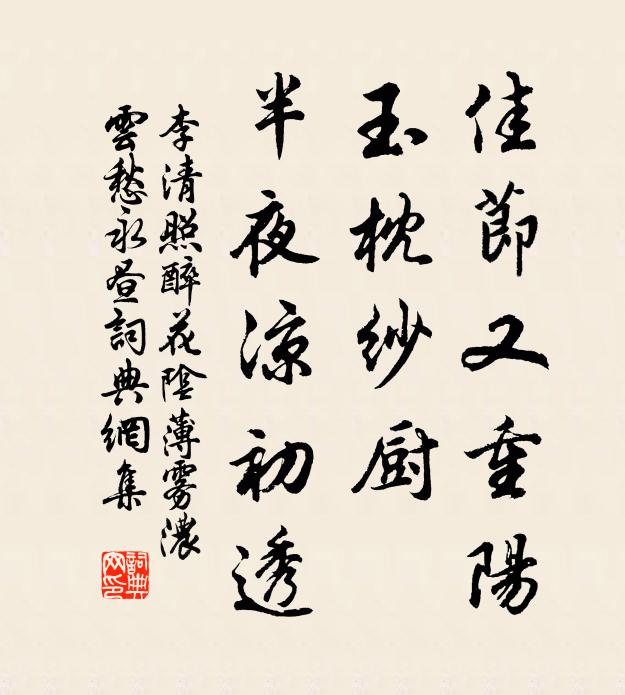 佳節又重陽
玉枕紗厨
半夜涼初透
李清照醉花陰薄霧濃
雲愁永晝詞典網集
詞典
网印